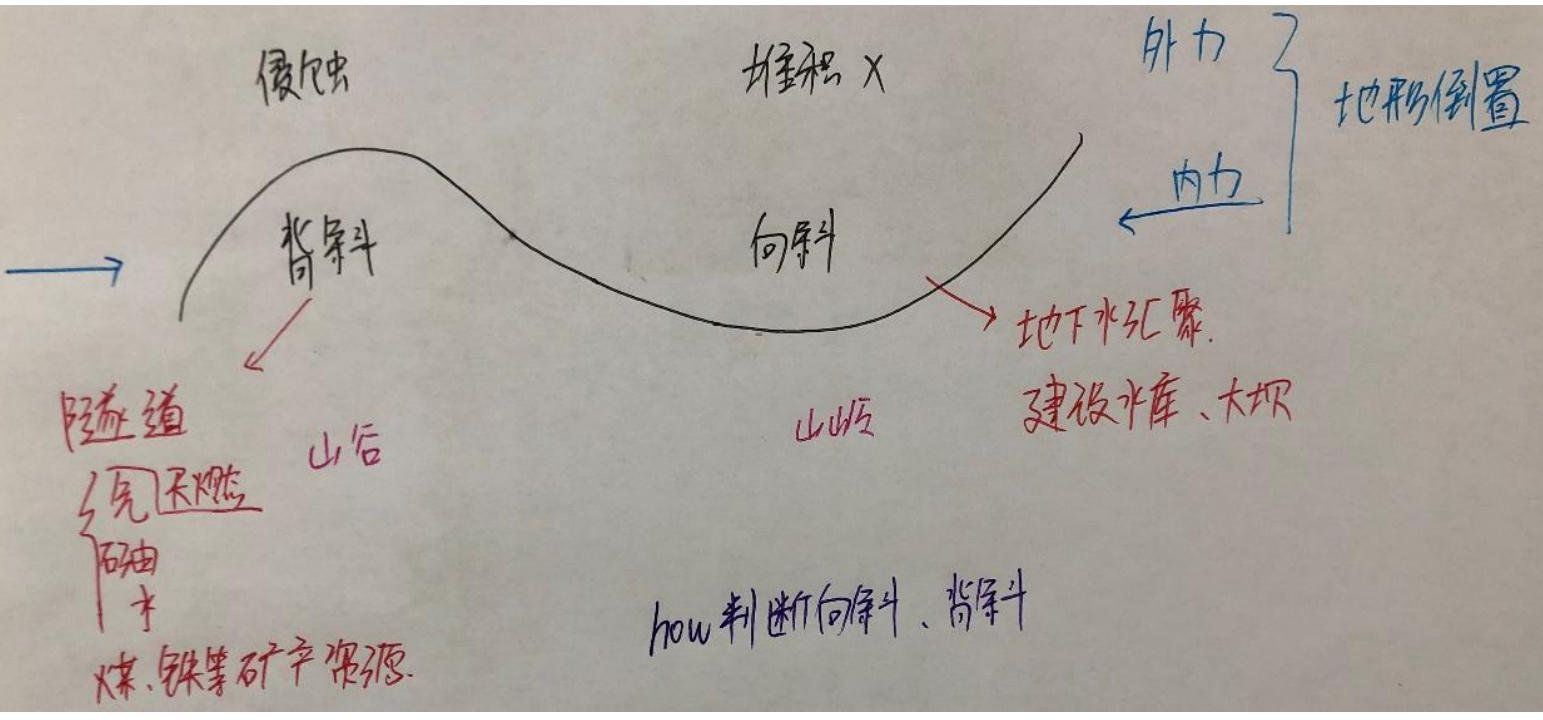 侵蚀
堆积 X
外力
地形倒置
内力
背斜
向斜
地下水汇聚.
建设水库、大坝
隧道
山谷
山岭
气 天燃
石油
水
煤、铁等矿产资源.
how判断向斜、背斜